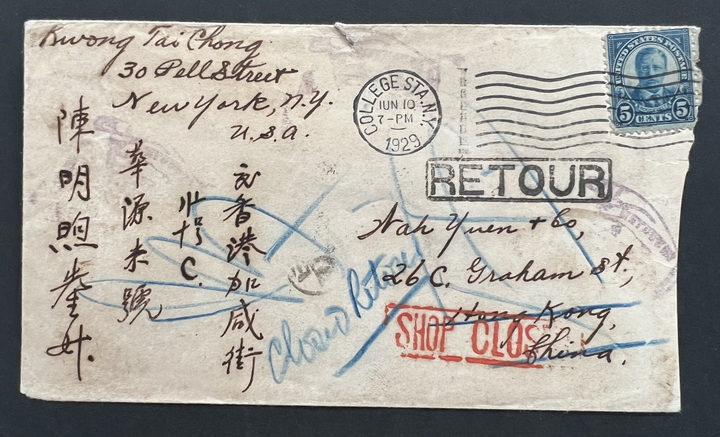 Kwong Tai Chong.
30 Pell Street
New York, N.Y.
U.S.A.
COLLEGE STA. N.Y.
JUN 10
7-PM
1929
UNITED STATES POSTAGE
5 5
CENTS
RETOUR
Wah Yuen + Co,
26 C. Graham St.,
Hong Kong,
China.
SHOP CLOS
Closed Retour
香港加咸街
号C.
華源米號
陳明煦